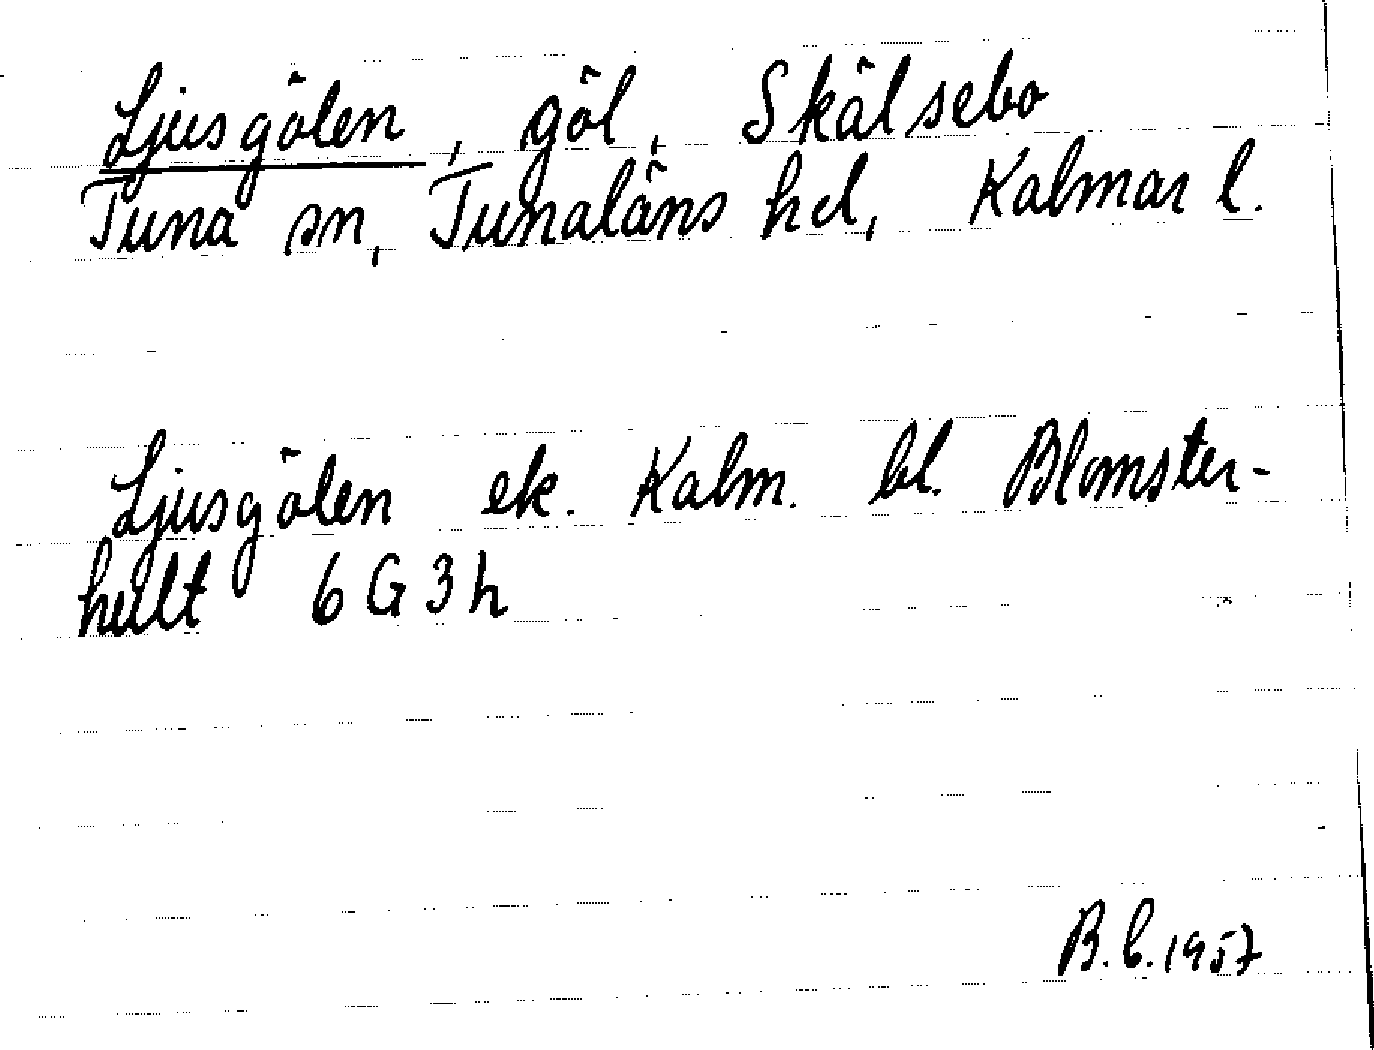 Ljusgölen, göl, Skälsebo
Tuna sn, Tunaläns hd, Kalmar l.
Ljusgölen ek. Kalm. bl. Blomster-
hult 6G3h
B.b.1957